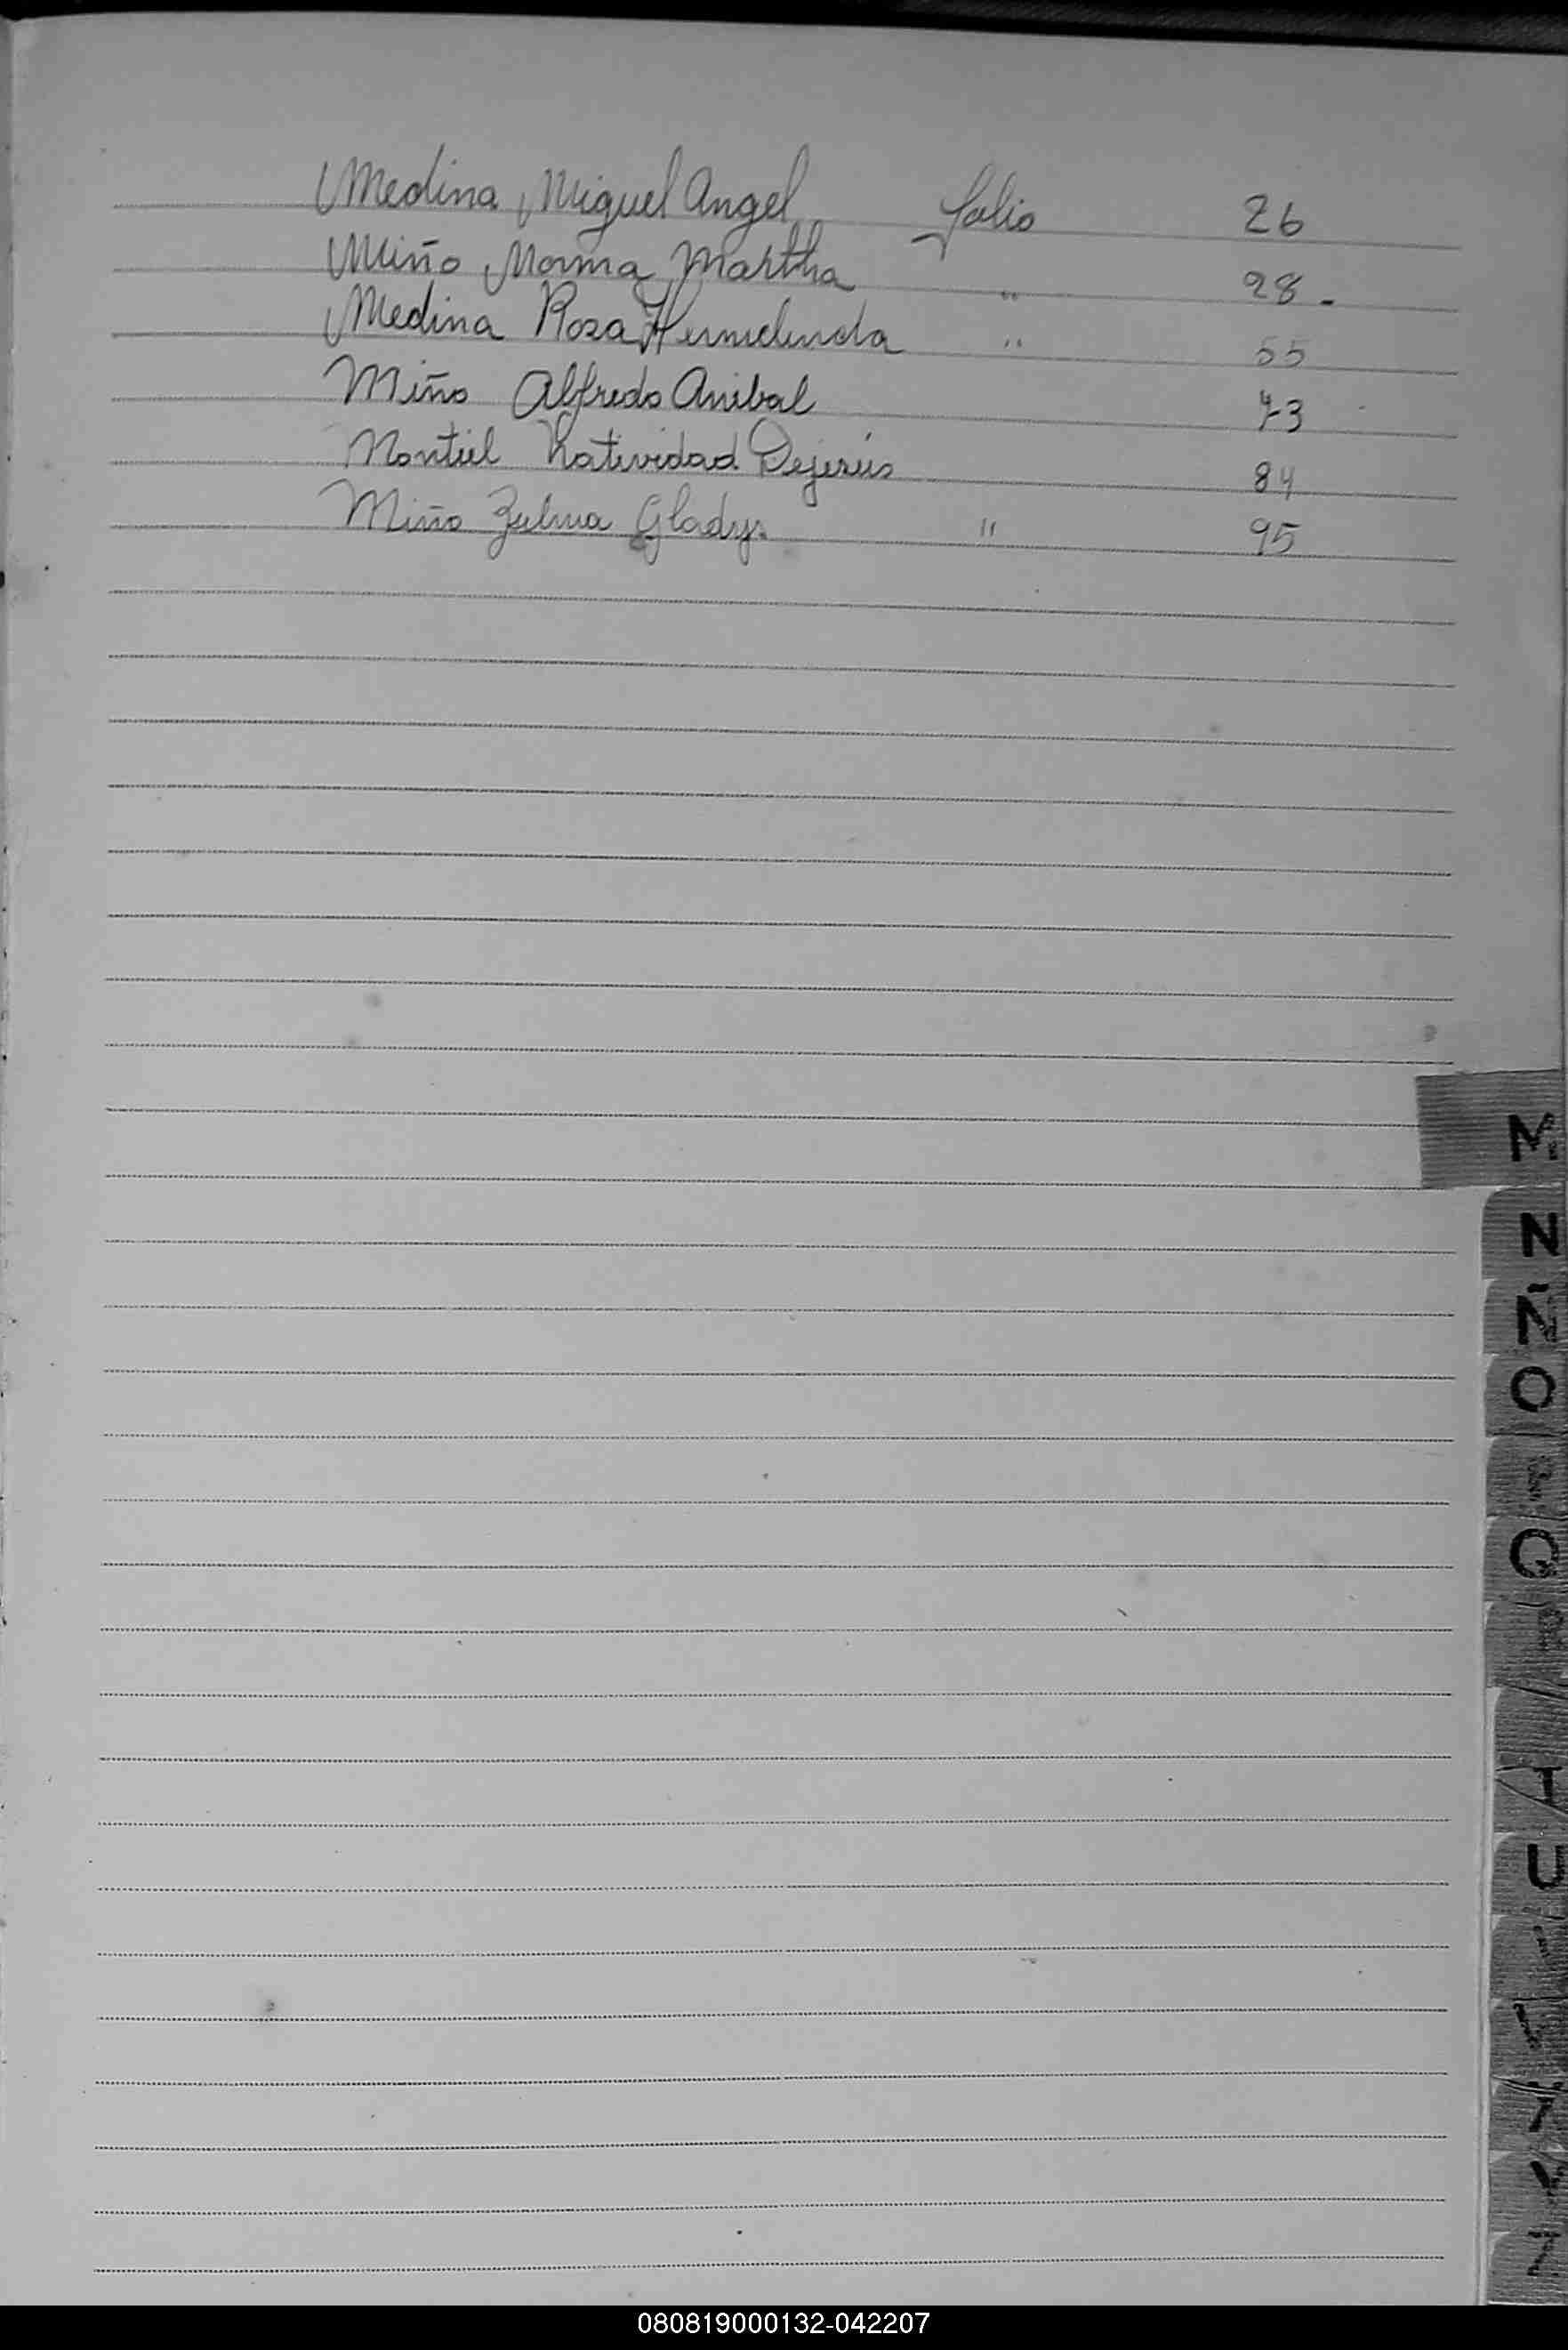 Medina Miguel Angel folio 26
Miño Norma Martha " 28-
Medina Rosa Hermelinda " 55
Miño Alfredo Anibal 73
Montiel Natividad Dejesús 84
Miño Zulma Gladys " 95
M
N
Ñ
O
Q
T
U
080819000132-042207